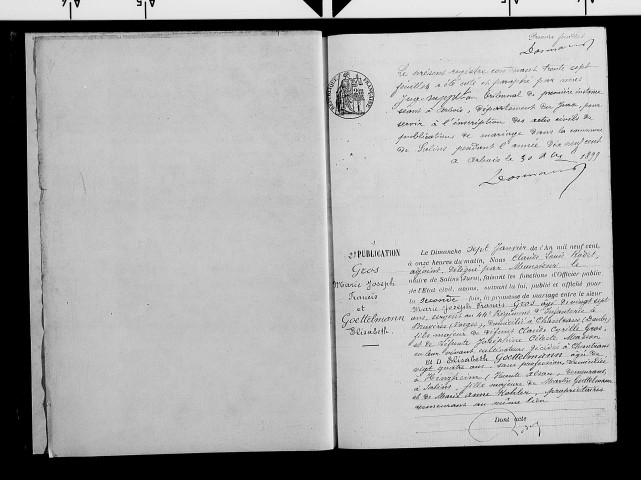 Premier feuillet
Le présent registre contenant trente sept
feuillets a été coté et paraphé par nous
Juge suppléant tribunal de première instance
séant à Arbois, département du Jura, pour
servir à l'inscription des actes civils de
publications de mariage dans la commune
de Salins pendant l'année dix neuf cent
à Arbois le 30 1899
RÉPUBLIQUE FRANÇAISE
2e PUBLICATION
Gros
Marie Joseph
Francis
et
Goettelmann
Elisabeth.
Le Dimanche sept Janvier de l'An mil neuf cent,
à onze heures du matin, Nous Claude Louis
adjoint délégué par Monsieur le
Maire de Salins (Jura), faisant les fonctions d'Officier public
de l'Etat civil, avons, suivant la loi, publié et affiché pour
la seconde fois, la promesse de mariage entre le sieur
Marie Joseph Francis Gros âgé de vingt sept
ans, sergent au 44e Régiment d'Infanterie à
Bruyères (Vosges), domicilié à Chantrans (Doubs)
fils majeur de défunt Claude Cyrille Gros,
et de défunte Joséphine Céleste
en leur vivant cultivateurs décédés à Chantrans
Et D. Elisabeth Goettelmann âgée de
vingt quatre ans, sans profession, domiciliée
à (Haute Alsace), demeurant
à Salins, fille majeure de Martin Goettelmann
et de Marie Anne Kohler, propriétaires
demeurant au même lieu
Dont acte